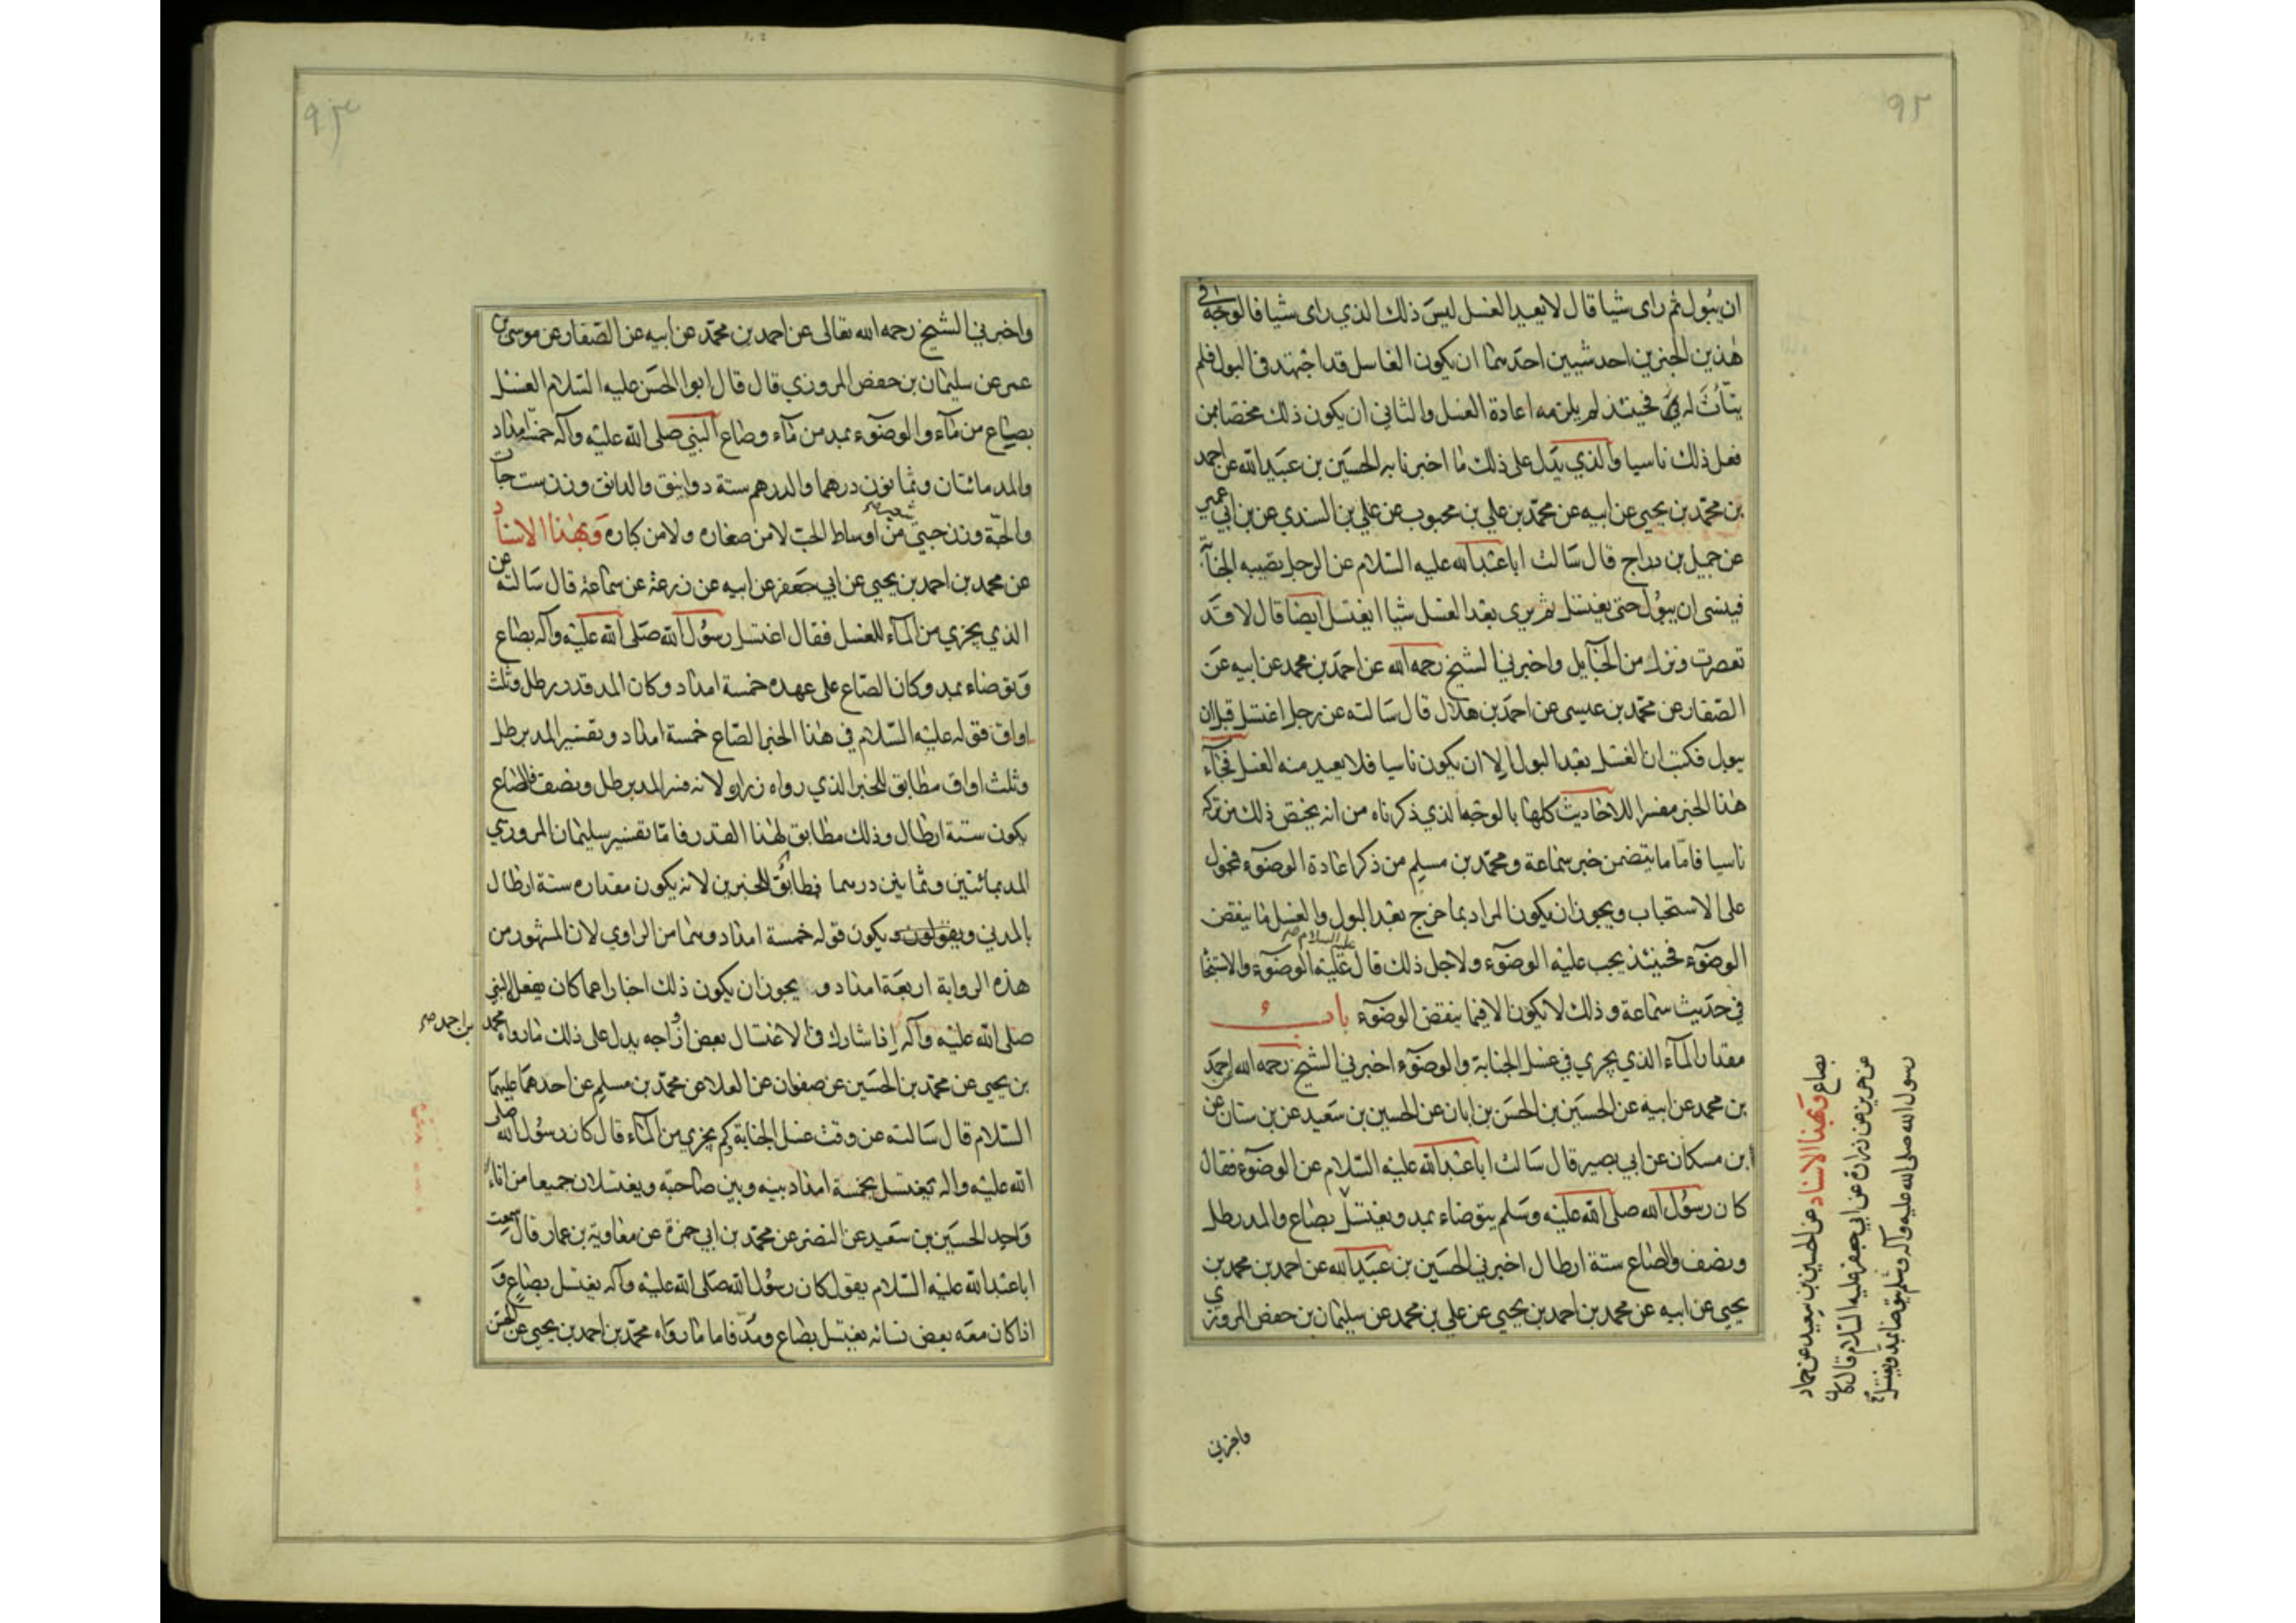 ٩٢
ان يبول ثم راى شيا قال لا يعيد الغسل ليس ذلك الذي راى شيا فالوجه في
هذين الخبرين احد شيين احدهما ان يكون الغاسل قد اجتهد في البول فلم
يتأت له فحينئذ لم يلزمه اعادة الغسل والثاني ان يكون ذلك مختصا بمن
فعل ذلك ناسيا والذي يدل على ذلك ما اخبرنا به الحسين بن عبيد الله عن احمد
بن محمد بن يحيى عن ابيه عن محمد بن علي بن محبوب عن علي بن السندي عن بن ابي عمير
عن جميل بن دراج قال سالت ابا عبد الله عليه السلام عن الرجل تصيبه الجنابة
فينسى ان يبول حتى يغتسل ثم يرى بعد الغسل شيا ايغتسل ايضا قال لا قد
تعصرت ونزل من الحبايل واخبرني الشيخ رحمه الله عن احمد بن محمد عن ابيه عن
الصفار عن محمد بن عيسى عن احمد بن هلال قال سالته عن رجل اغتسل قبل ان
يبول فكتب ان الغسل بعد البول الا ان يكون ناسيا فلا يعيد منه الغسل فجاء
هذا الخبر مفسرا للاحاديث كلها بالوجه الذي ذكرناه من انه يختص ذلك من تركه
ناسيا فاما ما يتضمن خبر سماعة ومحمد بن مسلم من ذكر اعادة الوضوء فمحمول
على الاستحباب ويجوز ان يكون المراد بما خرج بعد البول والغسل ما ينقض
الوضوء فحينئذ يجب عليه الوضوء ولاجل ذلك قال عليه السلام عليه الوضوء والاستنجا
في حديث سماعة وذلك لا يكون الا فيما ينقض الوضوء باب
مقدار الماء الذي يجزي في غسل الجنابة والوضوء اخبرني الشيخ رحمه الله احمد
بن محمد عن ابيه عن الحسين بن الحسن بن ابان عن الحسين بن سعيد عن بن سنان عن
ابن مسكان عن ابي بصير قال سالت ابا عبد الله عليه السلام عن الوضوء فقال
كان رسول الله صلى الله عليه وسلم يتوضاء بمد ويغتسل بصاع والمد رطل
ونصف والصاع ستة ارطال اخبرني الحسين بن عبيد الله عن احمد بن محمد بن
يحيى عن ابيه عن محمد بن احمد بن يحيى عن علي بن محمد عن سليمان بن حفص المروزي
بصاع وبهذا الاسناد عن الحسين بن سعيد عن حماد
عن حريز عن زرارة عن ابي جعفر عليه السلام قال كان
رسول الله صلى الله عليه وآله وسلم يتوضا بمد ويغتسل
واخبرني
٩٣
واخبرني الشيخ رحمه الله تعالى عن احمد بن محمد عن ابيه عن الصفار عن موسى بن
عمر عن سليمان بن حفص المروزي قال قال ابو الحسن عليه السلام الغسل
بصاع من ماء والوضوء بمد من ماء وصاع النبي صلى الله عليه وآله خمسة امداد
والمد مائتان وثمانون درهما والدرهم ستة دوانيق والدانق وزن ست حبات
والحبة وزن حبتي شعير من اوساط الحب لا من صغاره ولا من كباره وبهذا الاسناد
عن محمد بن احمد بن يحيى عن ابي جعفر عن ابيه عن زرعة عن سماعة قال سالته عن
الذي يجزي من الماء للغسل فقال اغتسل رسول الله صلى الله عليه وآله بصاع
وتوضاء بمد وكان الصاع على عهده خمسة امداد وكان المد قدر رطل وثلث
اواق فقوله عليه السلام في هذا الخبر الصاع خمسة امداد وتفسير المد برطل
وثلث اواق مطابق للخبر الذي رواه زرارة لانه فسر المد برطل ونصف فالصاع
يكون ستة ارطال وذلك مطابق لهذا القدر فاما تفسير سليمان المروزي
المد بمائتين وثمانين درهما فطابق للخبرين لانه يكون مقداره ستة ارطال
بالمدني ويكون قوله خمسة امداد وهما من الراوي لان المشهور من
هذه الرواية اربعة امداد و يجوز ان يكون ذلك اخبارا عما كان يفعل النبي
صلى الله عليه وآله اذا شارك في الاغتسال بعض ازواجه يدل على ذلك ما رواه محمد
بن احمد صح
بن يحيى عن محمد بن الحسين عن صفوان عن العلا عن محمد بن مسلم عن احدهما عليهما
السلام قال سالته عن وقت غسل الجنابة كم يجزي من الماء قال كان رسول الله صلى
الله عليه واله يغتسل بخمسة امداد بينه وبين صاحبته ويغتسلان جميعا من اناء
واحد الحسين بن سعيد عن النضر عن محمد بن ابي حمزة عن معاوية بن عمار قال سمعت
ابا عبد الله عليه السلام يقول كان رسول الله صلى الله عليه وآله يغتسل بصاع و
اذا كان معه بعض نسائه يغتسل بصاع ومد فاما ما رواه محمد بن احمد بن يحيى عن الحسن